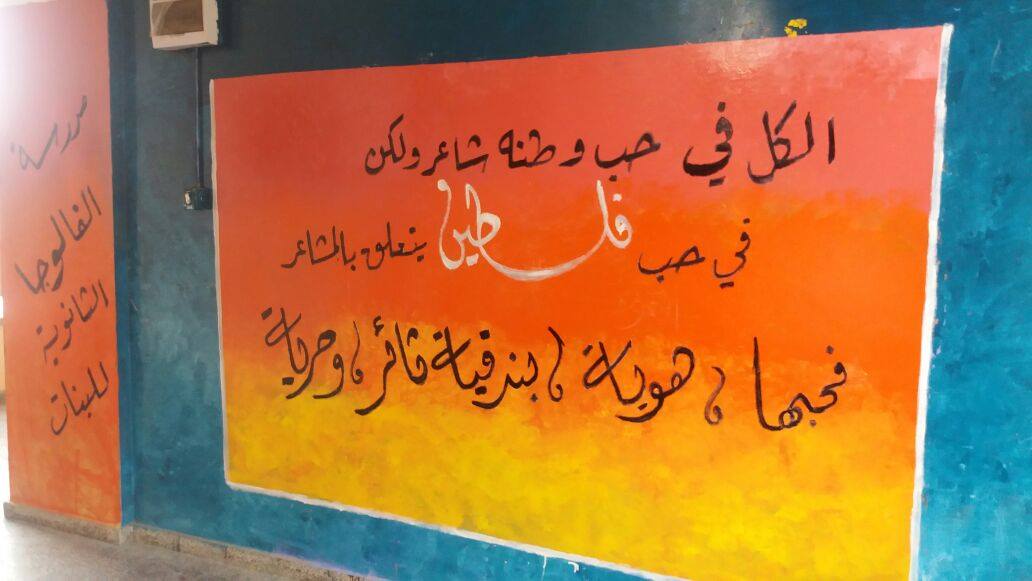 الكل في حب وطنه شاعر ولكن
في حب فلسطين يتعلق بالمشاعر
فحبها، هوية، بندقية ثائر، وحرية
مدرسة
الفالوجا
الثانوية
للبنات